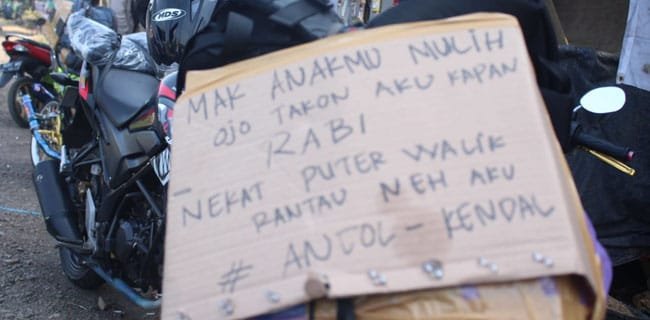 HDS
MAK ANAKMU MULIH
OJO TAKON AKU KAPAN
RABI
- NEKAT PUTER WALIK
RANTAU NEH AKU
# ANJOL - KENDAL